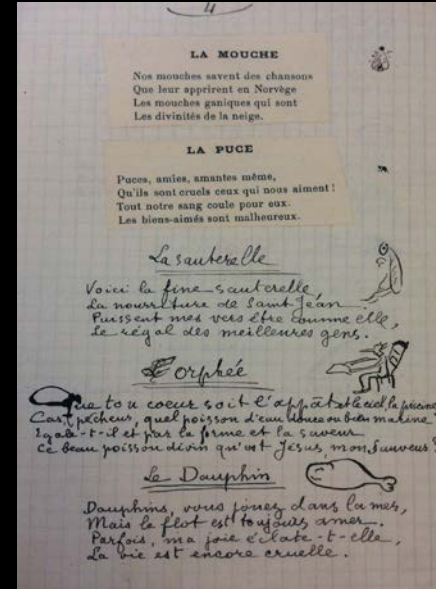 4
LA MOUCHE
Nos mouches savent des chansons
Que leur apprirent en Norvège
Les mouches ganiques qui sont
Les divinités de la neige.
LA PUCE
Puces, amies, amantes même,
Qu'ils sont cruels ceux qui nous aiment !
Tout notre sang coule pour eux.
Les biens-aimés sont malheureux.
La sauterelle
Voici la fine sauterelle,
La nourriture de Saint Jean
Puissent mes vers être comme elle,
Le régal des meilleures gens.
Orphée
Que ton coeur soit l'appât et le ciel, la piscine
Car, pêcheur, quel poisson d'eau douce ou bien marine
Egale-t-il et par la forme et la saveur
Ce beau poisson divin qu'est Jésus, mon Sauveur ?
Le Dauphin
Dauphins, vous jouez dans la mer,
Mais le flot est toujours amer.
Parfois, ma joie éclate-t-elle,
La vie est encore cruelle.